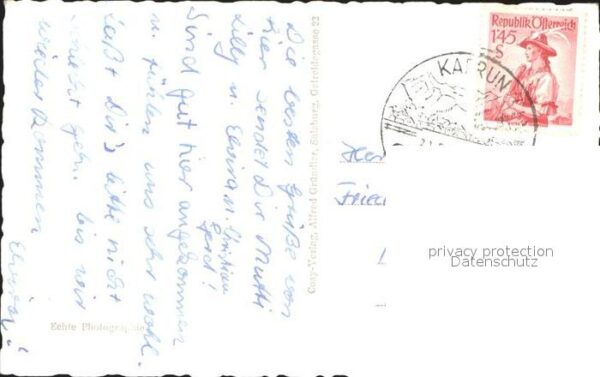 Die besten Grüße von
hier sendet Dir Mutti
Lilly u. Elvira u. Christian
Gerd!
Sind gut hier angekommen
u. fühlen uns sehr wohl.
Laßt Dir's bitte nicht
schlecht gehn bis wir
wieder kommen
Elvira!
Echte Photographie
Cosy-Verlag, Alfred Gründler, Salzburg, Getreidegasse 22
Republik Österreich
1'45
S
KAPRUN
Her
Fried
privacy protection
Datenschutz